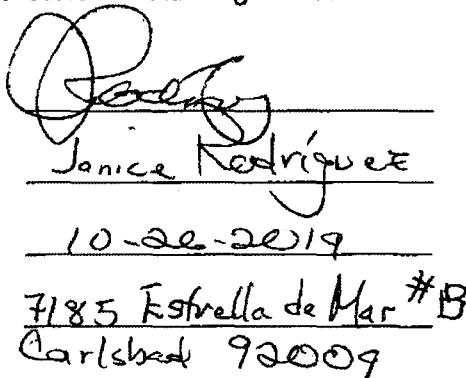 Janice Rodríguez
10-26-2019
7185 Estrella de Mar #B
Carlsbad 92009